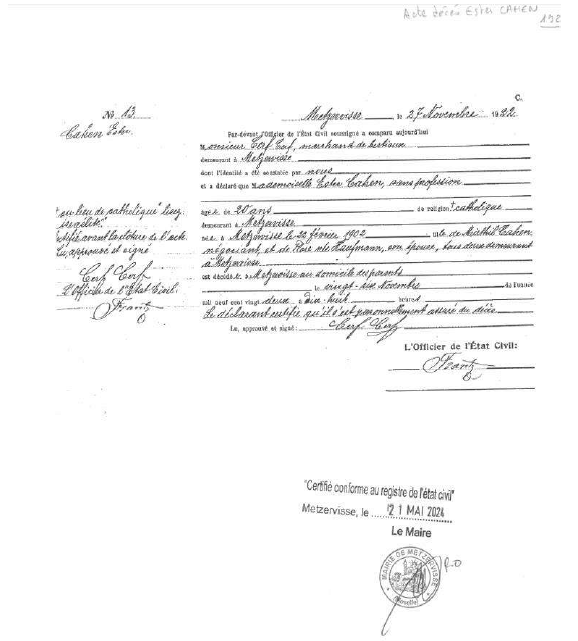 Acte décès Ester CAHEN
192
C.
No 13
Metzervisse le 27 Novembre 1922
Cahen Ester
Par-devant l'Officier de l'État Civil soussigné a comparu aujourd'hui
Monsieur Cerf Cerf, marchand de bestiaux
demeurant à Metzervisse
dont l'identité a été constatée par nous
et a déclaré que Mademoiselle Ester Cahen, sans profession
âgée de 20 ans de religion + catholique
demeurant à Metzervisse
née le à Metzervisse le 20 février 1902 fille de Cahen
négociant, et de née Kaufmann, son épouse, tous deux demeurant
à Metzervisse
est décédée à Metzervisse au domicile des parents
le vingt-six Novembre de l'année
mil neuf cent vingt deux à Dix-huit heures
Le déclarant certifie qu'il s'est personnellement assuré du décès.
Lu, approuvé et signé: Cerf Cerf
L'Officier de l'État Civil:
Frantz
+ au lieu de "catholique" lisez:
israélite"
avant la cloture de l'acte.
Lu, approuvé et signé
Cerf Cerf
L'Officier de l'État Civil
Frantz
"Certifié conforme au registre de l'état civil"
Metzervisse, le 21 MAI 2024
Le Maire
MAIRIE DE METZERVISSE
(Moselle)
P.O